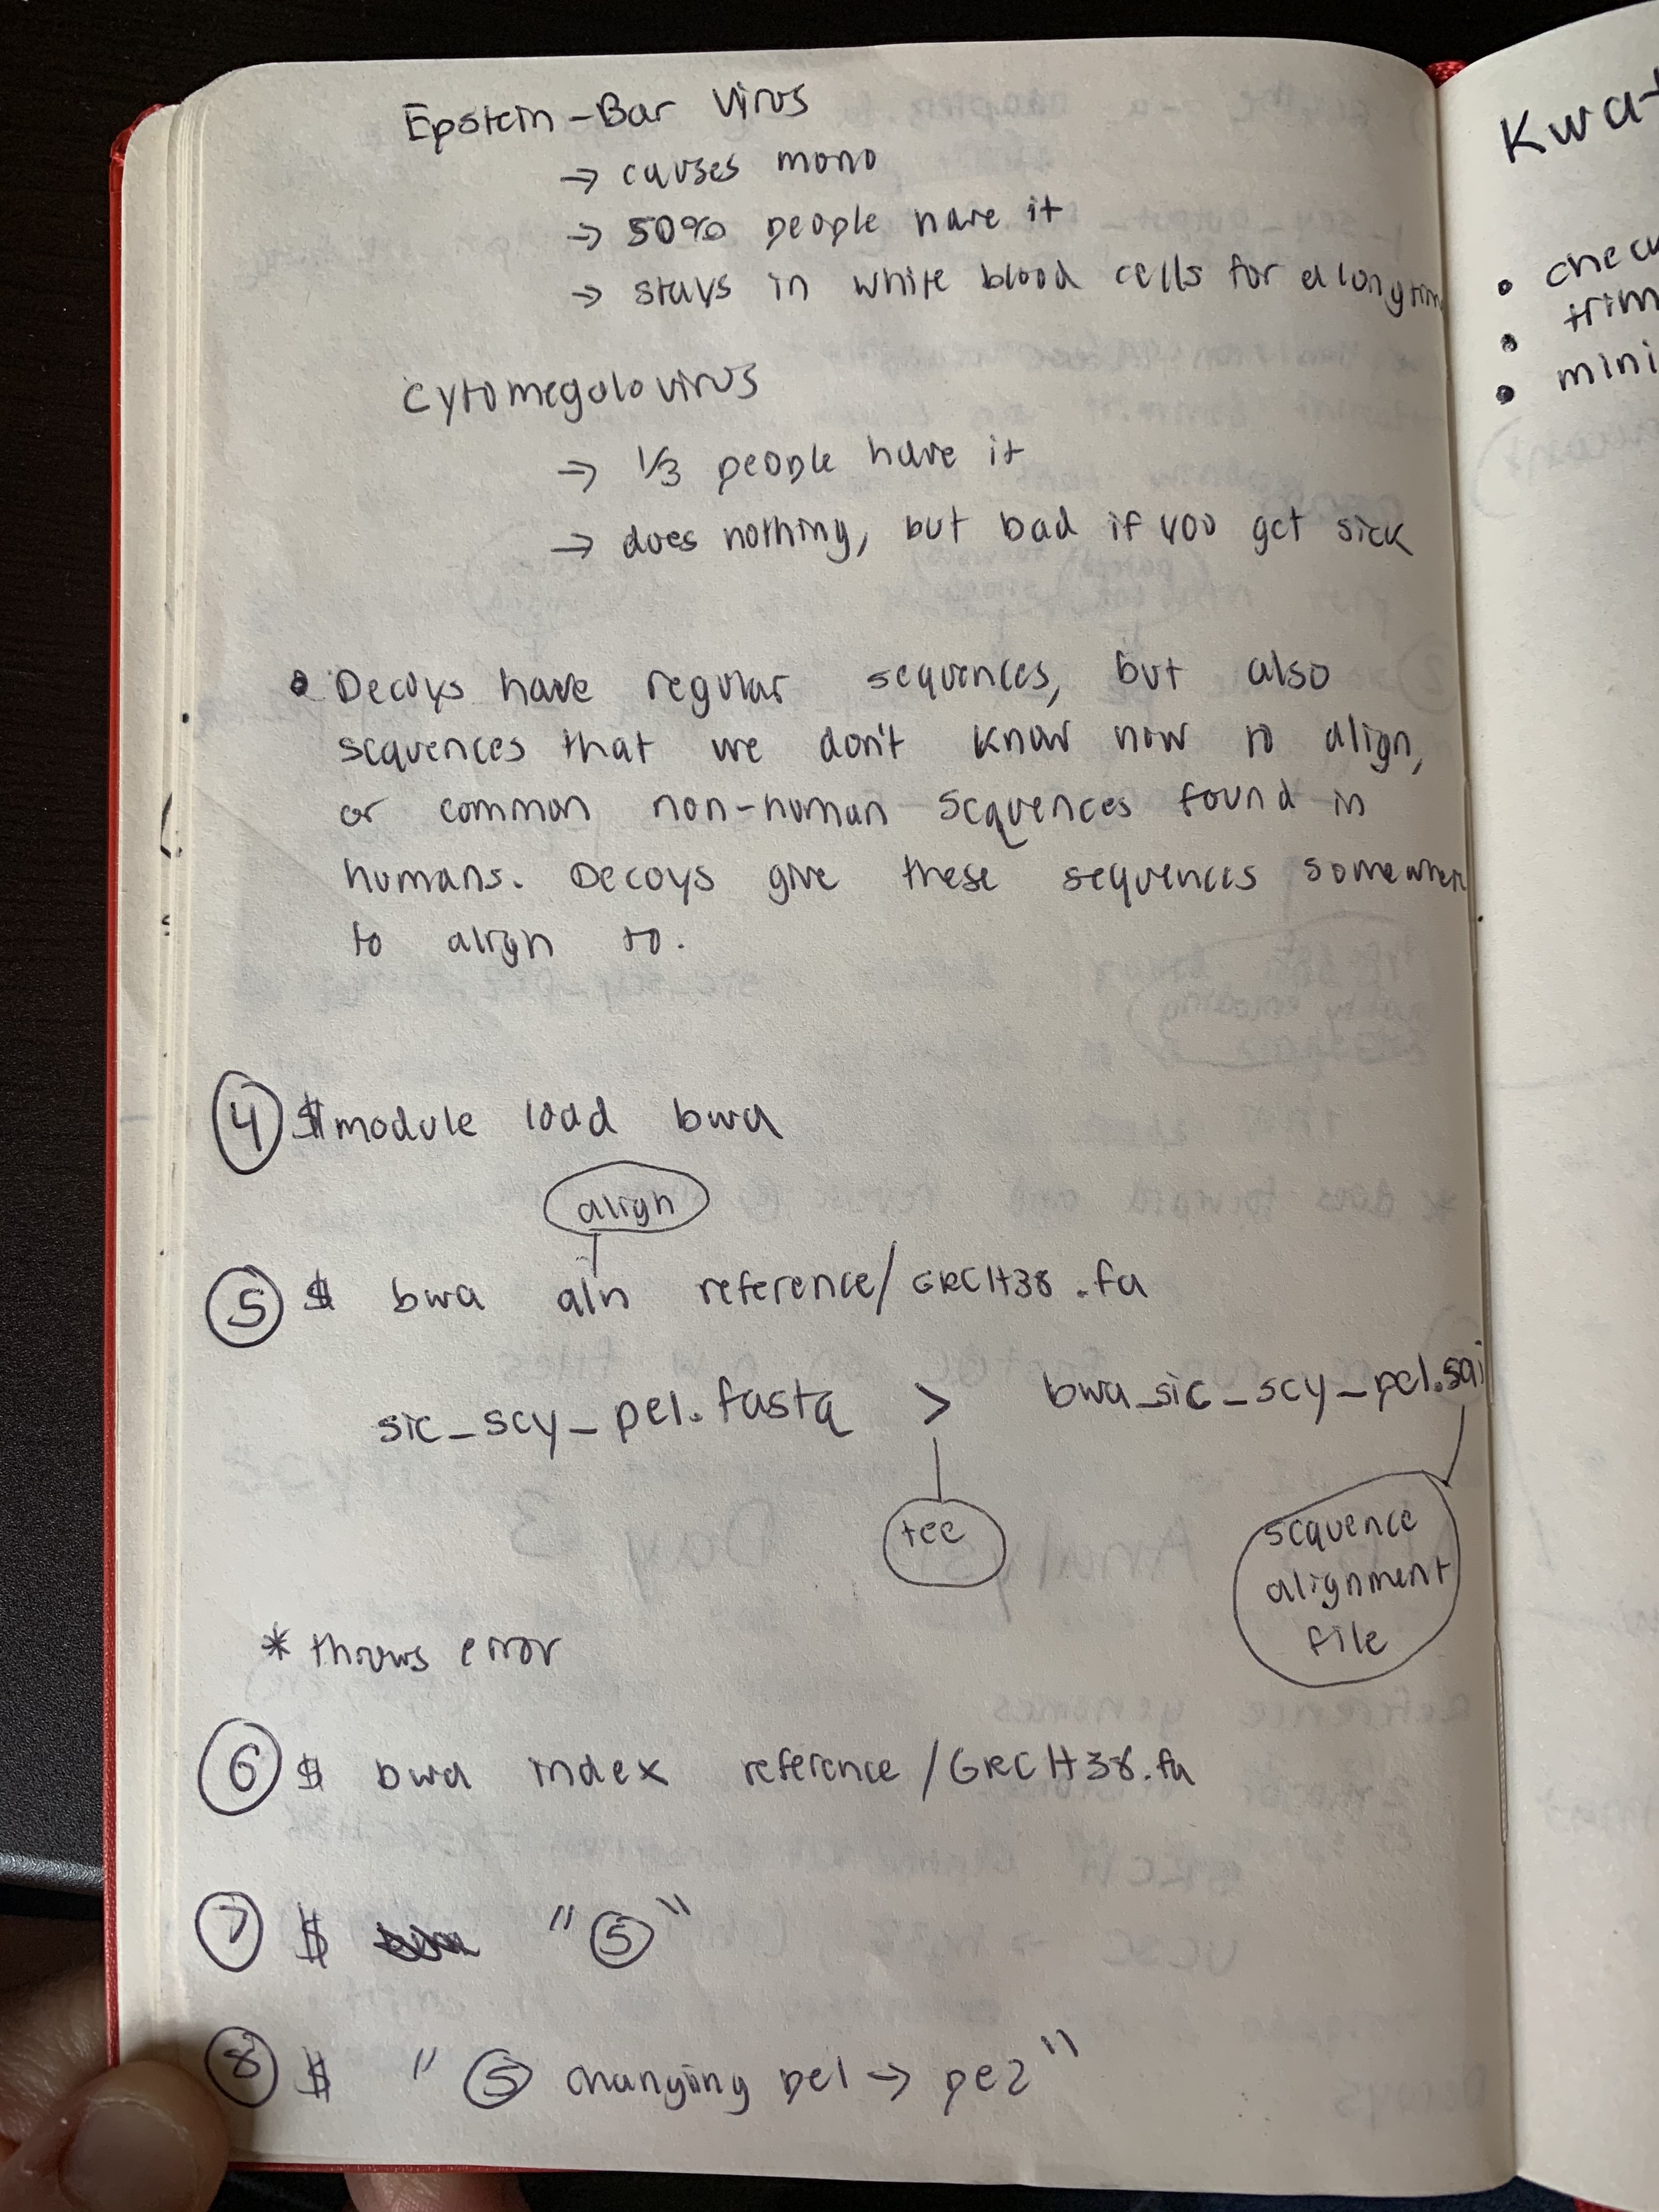 Epstein-Bar Virus
→ causes mono
→ 50% people have it
→ stays in white blood cells for a long
Cytomegolovirus
→ 1/3 people have it
→ does nothing, but bad if you get sick
• Decoys have regular sequences, but also
sequences that we don't know how to align,
or common non-human sequences found in
humans. Decoys give these sequences
to align to.
④ $ module load bwa
align
⑤ $ bwa aln reference/GRCH38.fa
sic_scy_pe1.fastq > bwa_sic_scy_pe1.sai
tee
sequence
alignment
file
* throws error
⑥ $ bwa index reference/GRCH38.fa
⑦ $ "⑤"
⑧ $ "⑤ changing pe1 → pe2"
• 
• trim
• mini